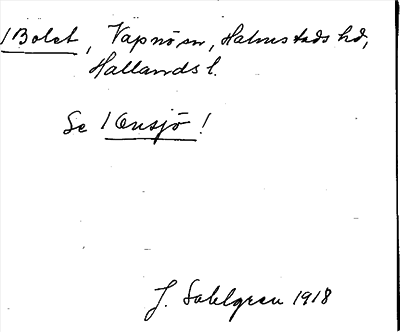 /Bolet, Vapnö sn, Halmstads hd,
Hallands l.
Se /Onsjö!
J. Sahlgren 1918